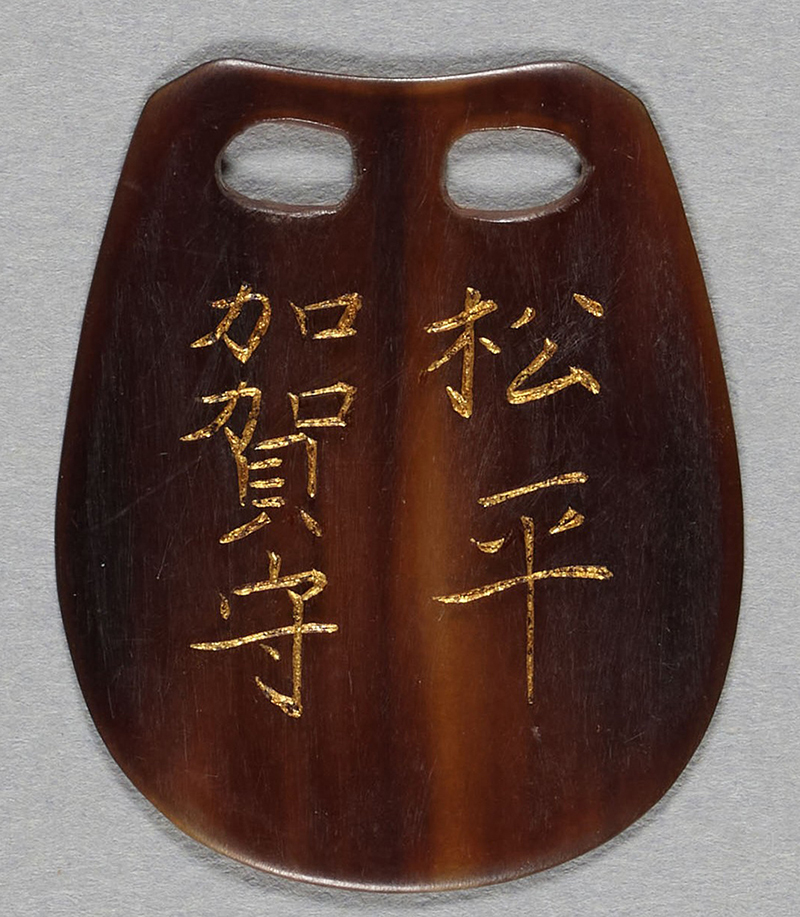 松平
加賀守